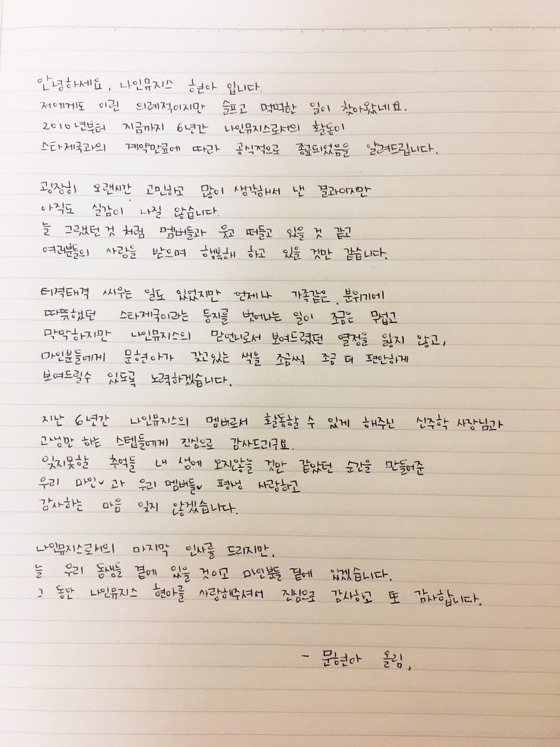 안녕하세요, 나인뮤지스 현아 입니다.
저에게도 이런 의례적이지만 슬프고 먹먹한 일이 찾아왔네요.
2010년부터 지금까지 6년간 나인뮤지스로서의 활동이
스타제국과의 계약만료에 따라 공식적으로 종료되었음을 알려드립니다.
굉장히 오랜시간 고민하고 많이 생각해서 낸 결과이지만
아직도 실감이 나질 않습니다.
늘 그랬던 것 처럼 멤버들과 웃고 떠들고 있을 것 같고
여러분들의 사랑을 받으며 행복해 하고 있을 것만 같습니다.
티격태격 싸우는 일도 있었지만 언제나 가족같은 분위기에
따뜻했던 스타제국이라는 둥지를 벗어나는 일이 조금은 무섭고
막막하지만 나인뮤지스의 맏언니로서 보여드렸던 열정을 잃지 않고,
마인분들에게 문현아가 갖고있는 색을 조금씩 조금 더 편안하게
보여드릴수 있도록 노력하겠습니다.
지난 6년간 나인뮤지스의 멤버로서 활동할 수 있게 해주신 신주학 사장님과
고생만 하는 스텝들에게 진심으로 감사드리구요.
잊지못할 추억들 내 생에 오지않을 것만 같았던 순간을 만들어준
우리 마인♥과 우리 멤버들♥ 평생 사랑하고
감사하는 마음 잊지 않겠습니다.
나인뮤지스로서의 마지막 인사를 드리지만,
늘 우리 동생들 곁에 있을 것이고 마인분들 곁에 있겠습니다.
그 동안 나인뮤지스 현아를 사랑해주셔서 진심으로 감사하고 또 감사합니다.
- 문현아 올림,